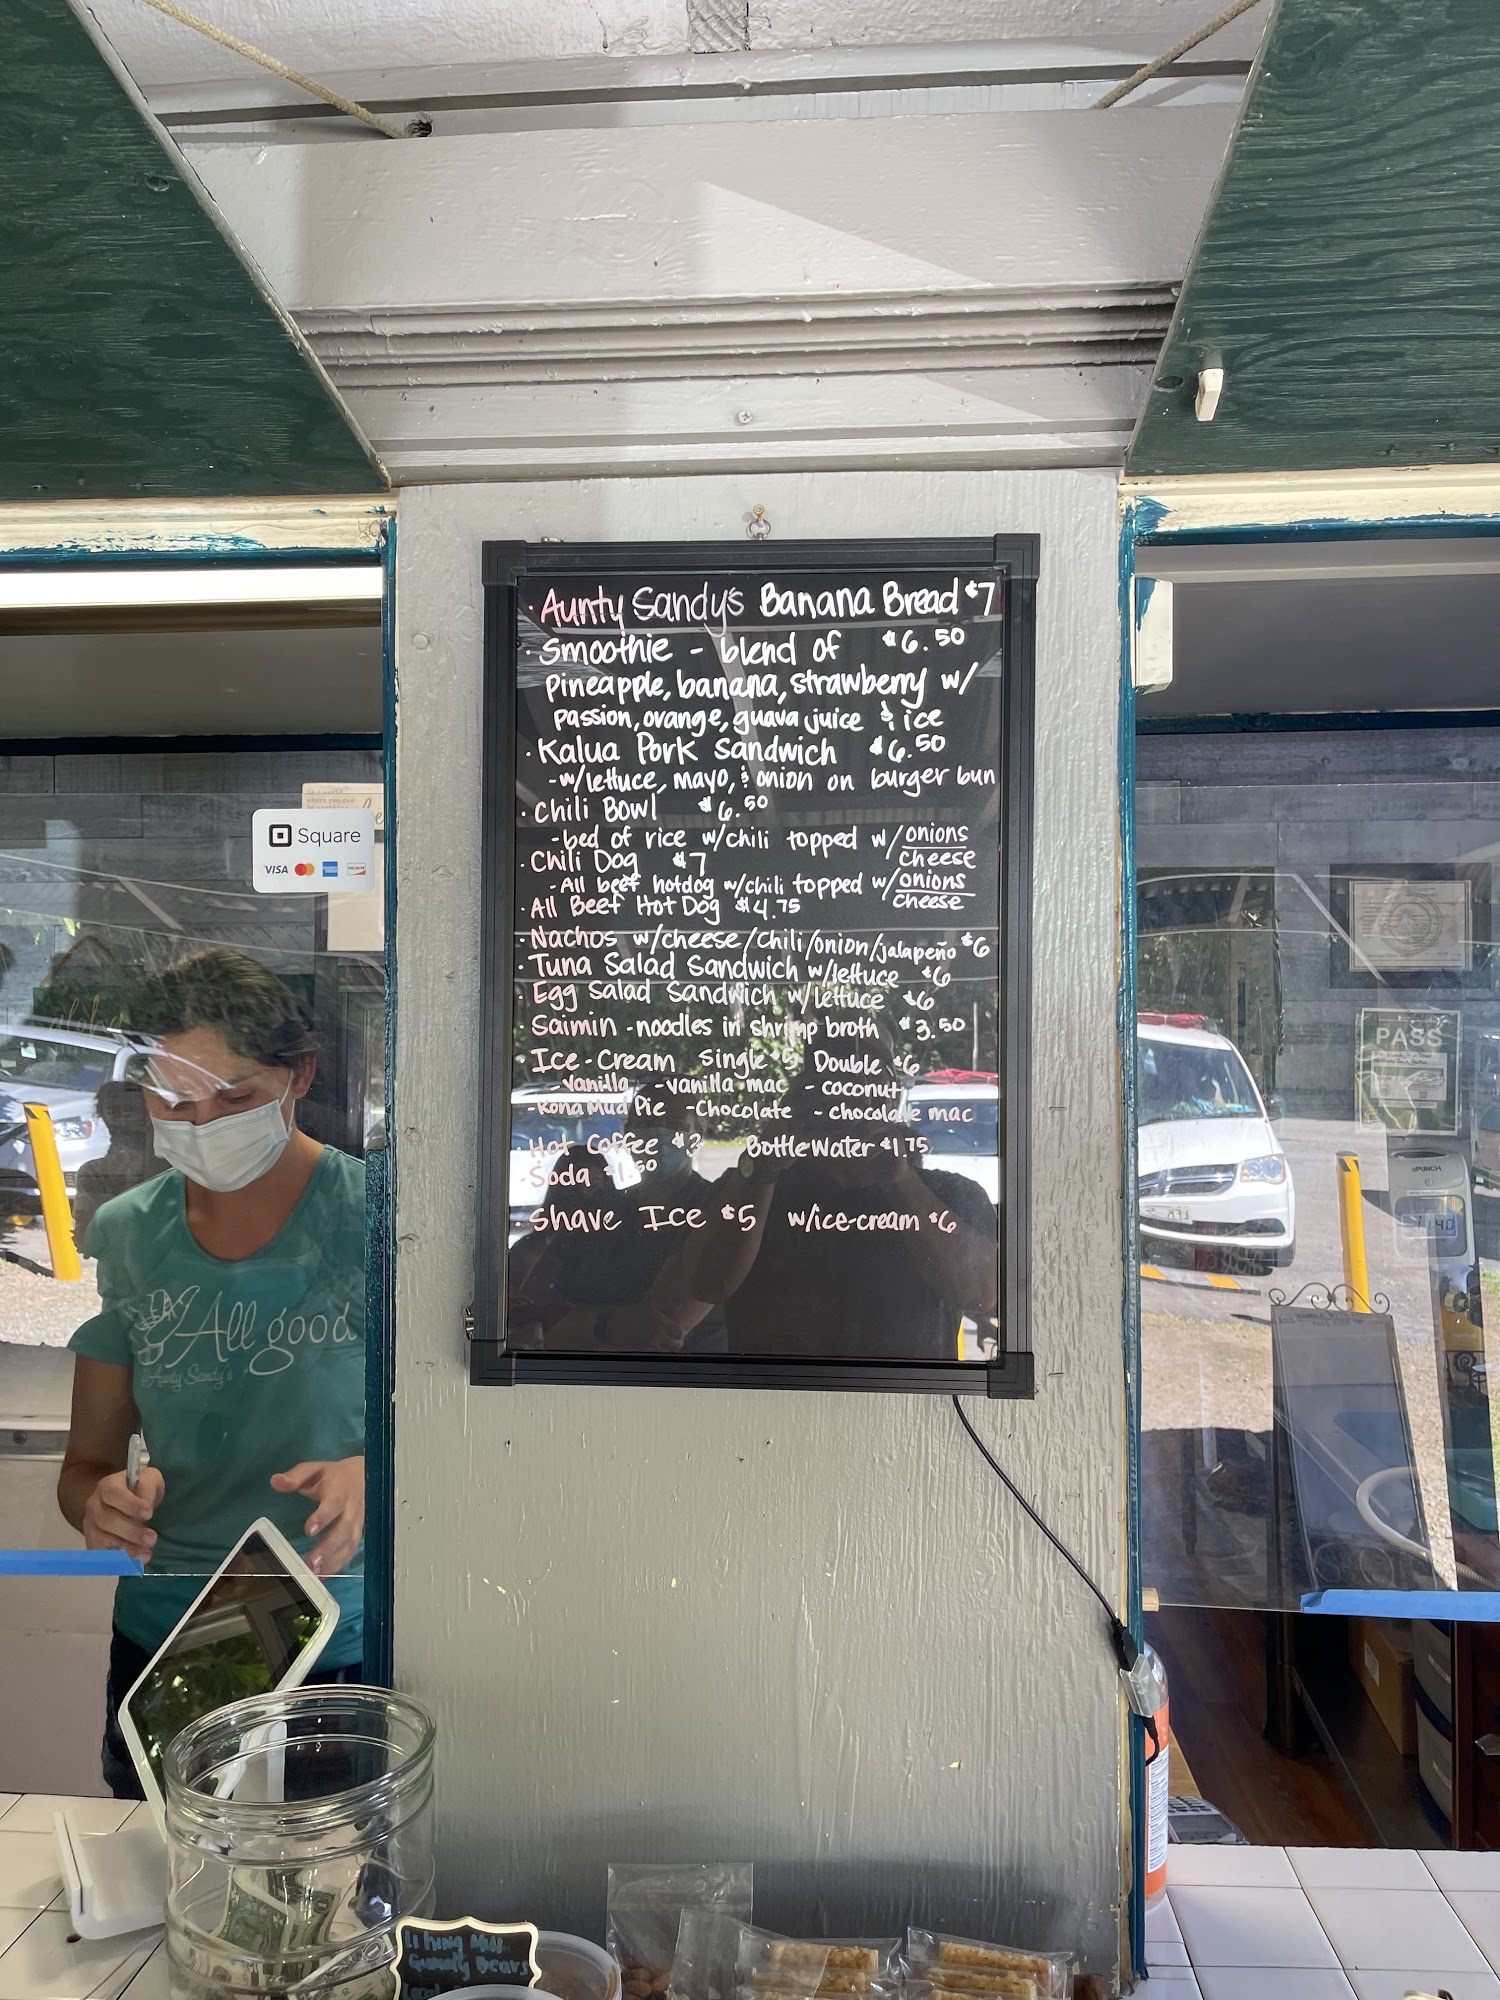 · Aunty Sandy's Banana Bread $7
· Smoothie - blend of $6.50
pineapple, banana, strawberry w/
passion, orange, guava juice & ice
· Kalua Pork Sandwich $6.50
-w/lettuce, mayo, & onion on burger bun
· Chili Bowl $6.50
-bed of rice w/chili topped w/onions
cheese
· Chili Dog $7
-All beef hotdog w/chili topped w/onions
cheese
· All Beef Hot Dog $4.75
· Nachos w/cheese/chili/onion/jalapeño $6
· Tuna Salad Sandwich w/lettuce $6
· Egg Salad Sandwich w/lettuce $6
· Saimin - noodles in shrimp broth $3.50
· Ice-Cream Single $5 Double $6
-vanilla -vanilla mac - coconut
-Kona Mud Pie -Chocolate - chocolate mac
· Hot Coffee $3 Bottle Water $1.75
· Soda $1.50
· Shave Ice $5 w/ice-cream $6
Square
VISA
PASS
uPUNCH
All good
@ Aunty Sandy's
Li hing Mui
Gummy Bears
Local